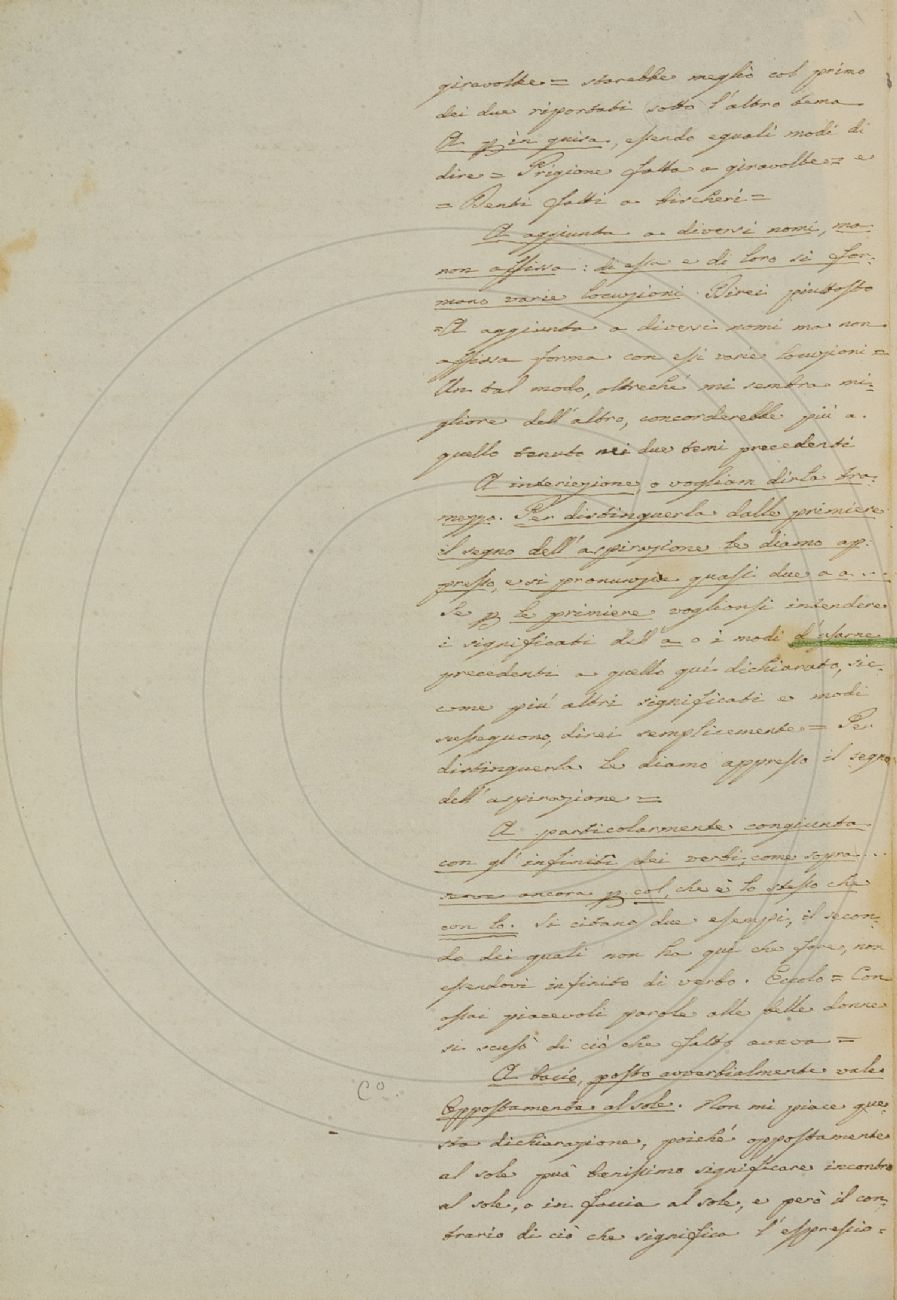 giravolte = starebbe meglio col primo
dei due riportati sotto l'altro tema
A p in guisa, essendo eguali modi di
dire = Prigione fatta a giravolte = e
= Denti fatti a bischeri =
A aggiunta a diversi nomi, ma
non affissa: di essa e di loro si for-
mano varie locuzioni. Direi piuttosto
= A aggiunta a diversi nomi ma non
affissa forma con essi varie locuzioni =
Un tal modo, oltreché mi sembra mi-
gliore dell'altro, concorderebbe più a
quello tenuto nei due temi precedenti
A interiezione, o vogliam dirla tra-
mezzo. Per distinguerla dalle primiere
il segno dell'aspirazione le diamo ap-
presso, e si pronunzia quasi due a a ...
Se p le primiere voglionsi intendere
i significati dell'a o i modi d'usarne
precedenti a quello qui dichiarato, sic-
come più altri significati e modi
susseguono, direi semplicemente = Per
distinguerla le diamo appresso il segno
dell'aspirazione =
A particolarmente congiunta
con gl'infiniti dei verbi, come sopra ...
serve ancora p. col, che è lo stesso che
con lo. Si citano due esempi, il secon-
do dei quali non ha qui che fare, non
essendovi infinito di verbo. Eccolo = Con
assai piacevoli parole alle belle donne
si scusò di ciò che fatto aveva =
A bacio, posto avverbialmente vale
Oppostamente al sole. Non mi piace que-
sta dichiarazione, poiché oppostamente
al sole può benissimo significare incontro
al sole, o in faccia al sole, e però il con-
trario di ciò che significa l'espressio-